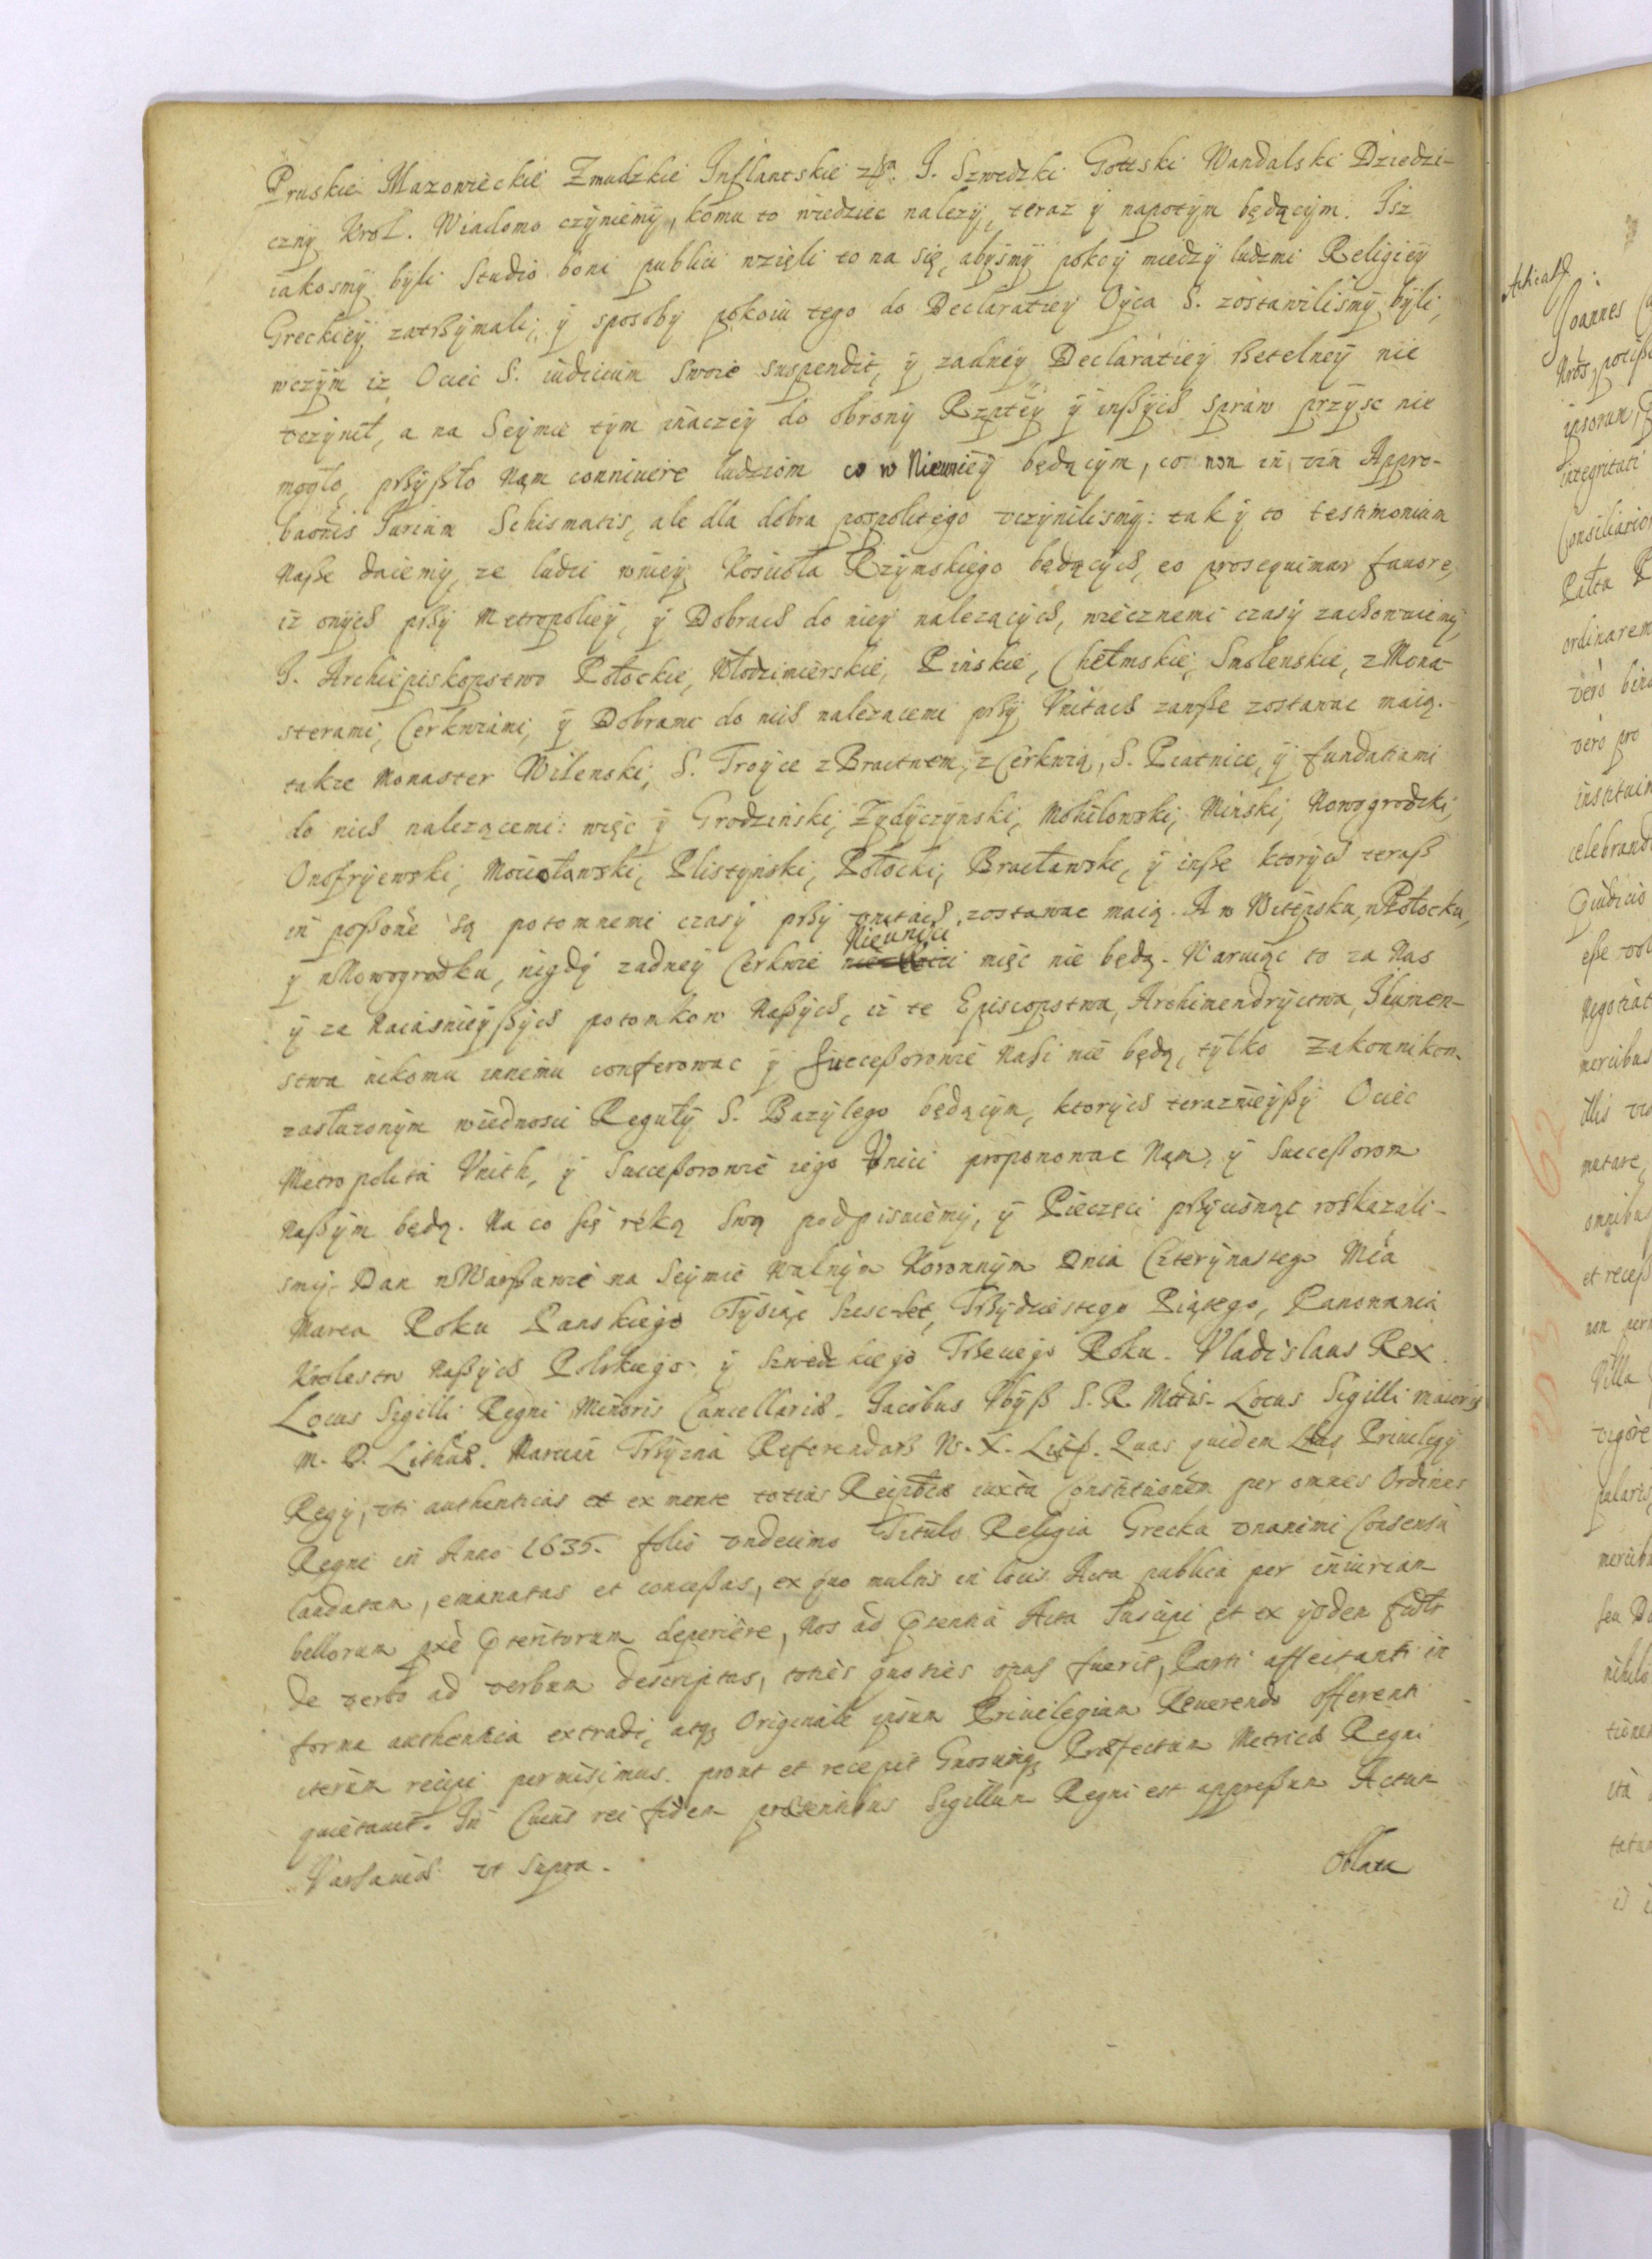 Pruskie Mazowieckie Zmudzkie Inflantskie J. Szwedzki Gottski Wandalski Dziedzi-
czny Krol. Wiadomo czyniemy, komu to wiedziec nalezy, teraz y napotym będącym. Isz
iakosmy byli studio boni publici wzięli to na się, abysmy pokoy miedzy ludzmi Religiey
Greckiey zatrßymali, y sposoby pokoiu tego do Declaratiey Oyca S. zostawilismy byli,
wczym iz Ociec S. iudicium swoie suspendit, y zadney Declaratiey Rzetelney nie
vczynił, a na Seymie tym inaczey do obrony Rzptey y inßych spraw przysc nie
mogło, prßyßło Nam conniuere ludziom co w Nieuniey będącym, co non in vim Appro-
baonis Iurium Schismatis, ale dla dobra pospolitego vczynilismy: tak y to testimonium
Naße daiemy, ze ludzi wniey Kosciola Rzymskiego będących, eo prosequimur fauore,
iz onych prßy Metropoliey, y Dobrach do niey nalezących, wiecznemi czasy zachowuiemy,
J. Archiepiskopstwo Połockie, Włodzimierskie, Pinskie, Chełmskie, Smolenskie, z Mona-
sterami, Cerkwiami, y Dobrami do nich nalezacemi prßy Vnitach zawße zostawac maią.
takze Monaster Wilenski, S. Troyce z Bractwem, z Cerkwią, S. Piatnice, y fundatiami
do nich nalezącemi: więc y Grodzinski, Zydyczynski, Mohilowski, Minski, Nowogrodzki,
Onofryewski, Mscisławski, Plistynski, Połocki, Bracławski, y inße ktorych teraß
in poßone są potomnemi czasy prßy vnitach zostawac maią. A w Witepsku, w Połocku,
Nieunici
y w Nowogrodku, nigdy zadney Cerkwie miec nie będą. Waruiąc to za Nas
y za Naiasnieyßych potomkow Naßych, iz te Episcopstwa, Archimendryctwa, Ihumen-
stwa nikomu innemu conferowac y Succeßorowie Nasi nie będą, tylko Zakonnikom
zasłuzonym wiednosci Reguły S. Bazylego będącym, ktorych teraznieyßy Ociec
Metropolita Vnith, y Succeßorowie iego Vnici proponowac Nam, y Succeßorom
Naßym będą. Na co się ręką swą podpisuiemy, y Pieczęci prßycisnąc roskazali-
smy. Dan w Warßawie na Seymie Walnym Koronnym Dnia Czterynastego Mca
Marca Roku Panskiego Tysiąc Szescset, Trßydziestego Piątego, Panowania
Krolestw Naßych Polskiego y Szwedzkiego Trßeciego Roku. Vladislaus Rex
Locus Sigilli Regni Minoris Cancellariæ. Jacobus Vbyß S. R. Mttis. Locus Sigilli maioris
M. D. Lithuæ. Marcin Trßyzna Referendarß W. X. Lit. Quas quidem Lras Priuilegy
Regy, vti authenticas et ex mente totius Reipublicæ iuxta Constitutionem per omnes Ordines
Regni in Anno 1635. folio vndecimo Titulo Religia Grecka vnanimi Consensu
Laudatam, emanatas et conceßas, ex quo multis in locis Acta publica per iniuriam
bellorum præteritorum deperiere, Nos ad præsentia Acta suscipi et ex ijsdem
de verbo ad verbum descriptas, toties quoties opus fuerit, Parti affectanti in
forma authentica extradi, atq Originale ipsum Priuilegium Reuerendo offerenti
iterum recipi permisimus. prout et recepit Præfectum Metricæ Regni
quietauit. In Cuius rei fidem præsentibus Sigillum Regni est appreßum Actum
Varsauiæ vt supra.
Oblata
Joannes
ipsorum
integritati
Consiliario
ordinarem
vero
vero pro
celebrand
Negotiat
mercibus
mutare
omnibus
non
Villa
vigore